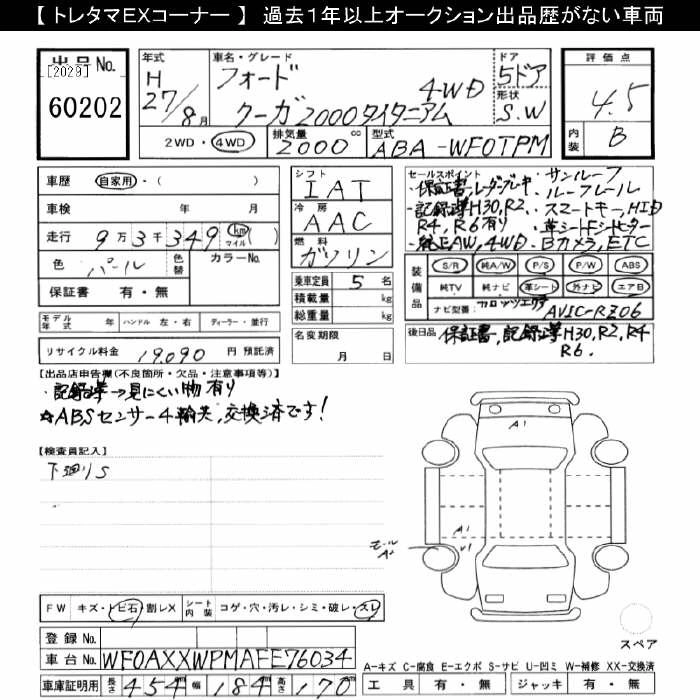 【 トレタマEXコーナー 】 過去１年以上オークション出品歴がない車両
出品 No.
[2029]
60202
年式
H
27/8月
車名・グレード
フォード 4WD
クーガ2000タイタニアム
ドア
5ドア
形状
S.W
評価点
4.5
内装
B
2WD・4WD
排気量
2000 cc
型式
ABA-WF0TPM
車歴 自家用・( )
車検 年 月
走行 9万3千349 km マイル( )
色 パール 色替 カラーNo.
保証書 有・無
シフト
IAT
冷房
AAC
燃料
ガソリン
乗車定員 5 名
積載量 kg
総重量 kg
セールスポイント
・保証書,レーダーブレーキ
・記録簿H30,R2,
R4,R6有り
・純正AW,4WD
・サンルーフ
・ルーフレール
・スマートキー,HID
・革シート,シートヒーター
・Bカメラ,ETC
装備品
S/R 純A/W P/S P/W ABS
純TV 純ナビ 革シート 外ナビ エアB
ナビ型番( カロッツェリア AVIC-RZ06
モデル年式 年 ハンドル 左・右 ディーラー・並行
リサイクル料金 19,090 円 預託済
名変期限
月 日
後日品 保証書,記録簿H30,R2,R4
R6.
【出品店申告欄(不良箇所・欠品・注意事項等)】
・記録簿→見にくい物有り
☆ABSセンサー4輪共,交換済です!
【検査員記入】
下廻りS
A1
A1
モール
A1
U1
FW キズ・トビ石・割レX シート内装 コゲ・穴・汚レ・シミ・破レ・スレ
登録 No.
車台 No. WF0AXXWPMAFE76034
車庫証明用 長さ 454 幅 184 高さ 170
スペア
A-キズ C-腐食 E-エクボ S-サビ U-凹ミ W-補修 XX-交換済
工具 有・無 ジャッキ 有・無